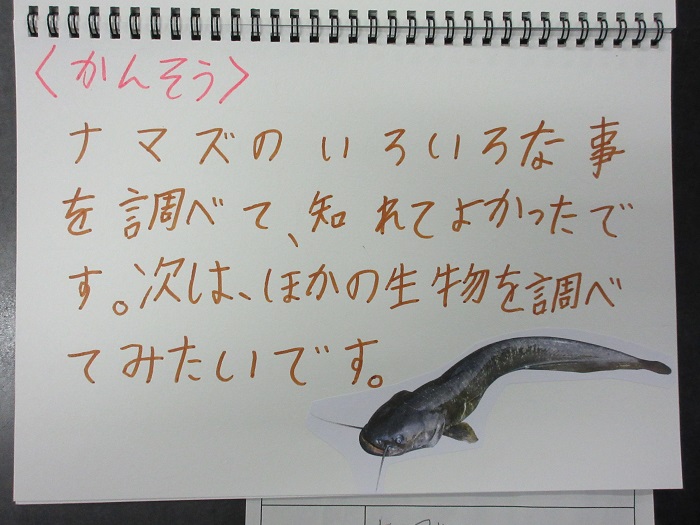 〈かんそう〉
ナマズのいろいろな事
を調べて、知れてよかったで
す。次は、ほかの生物を調べ
てみたいです。